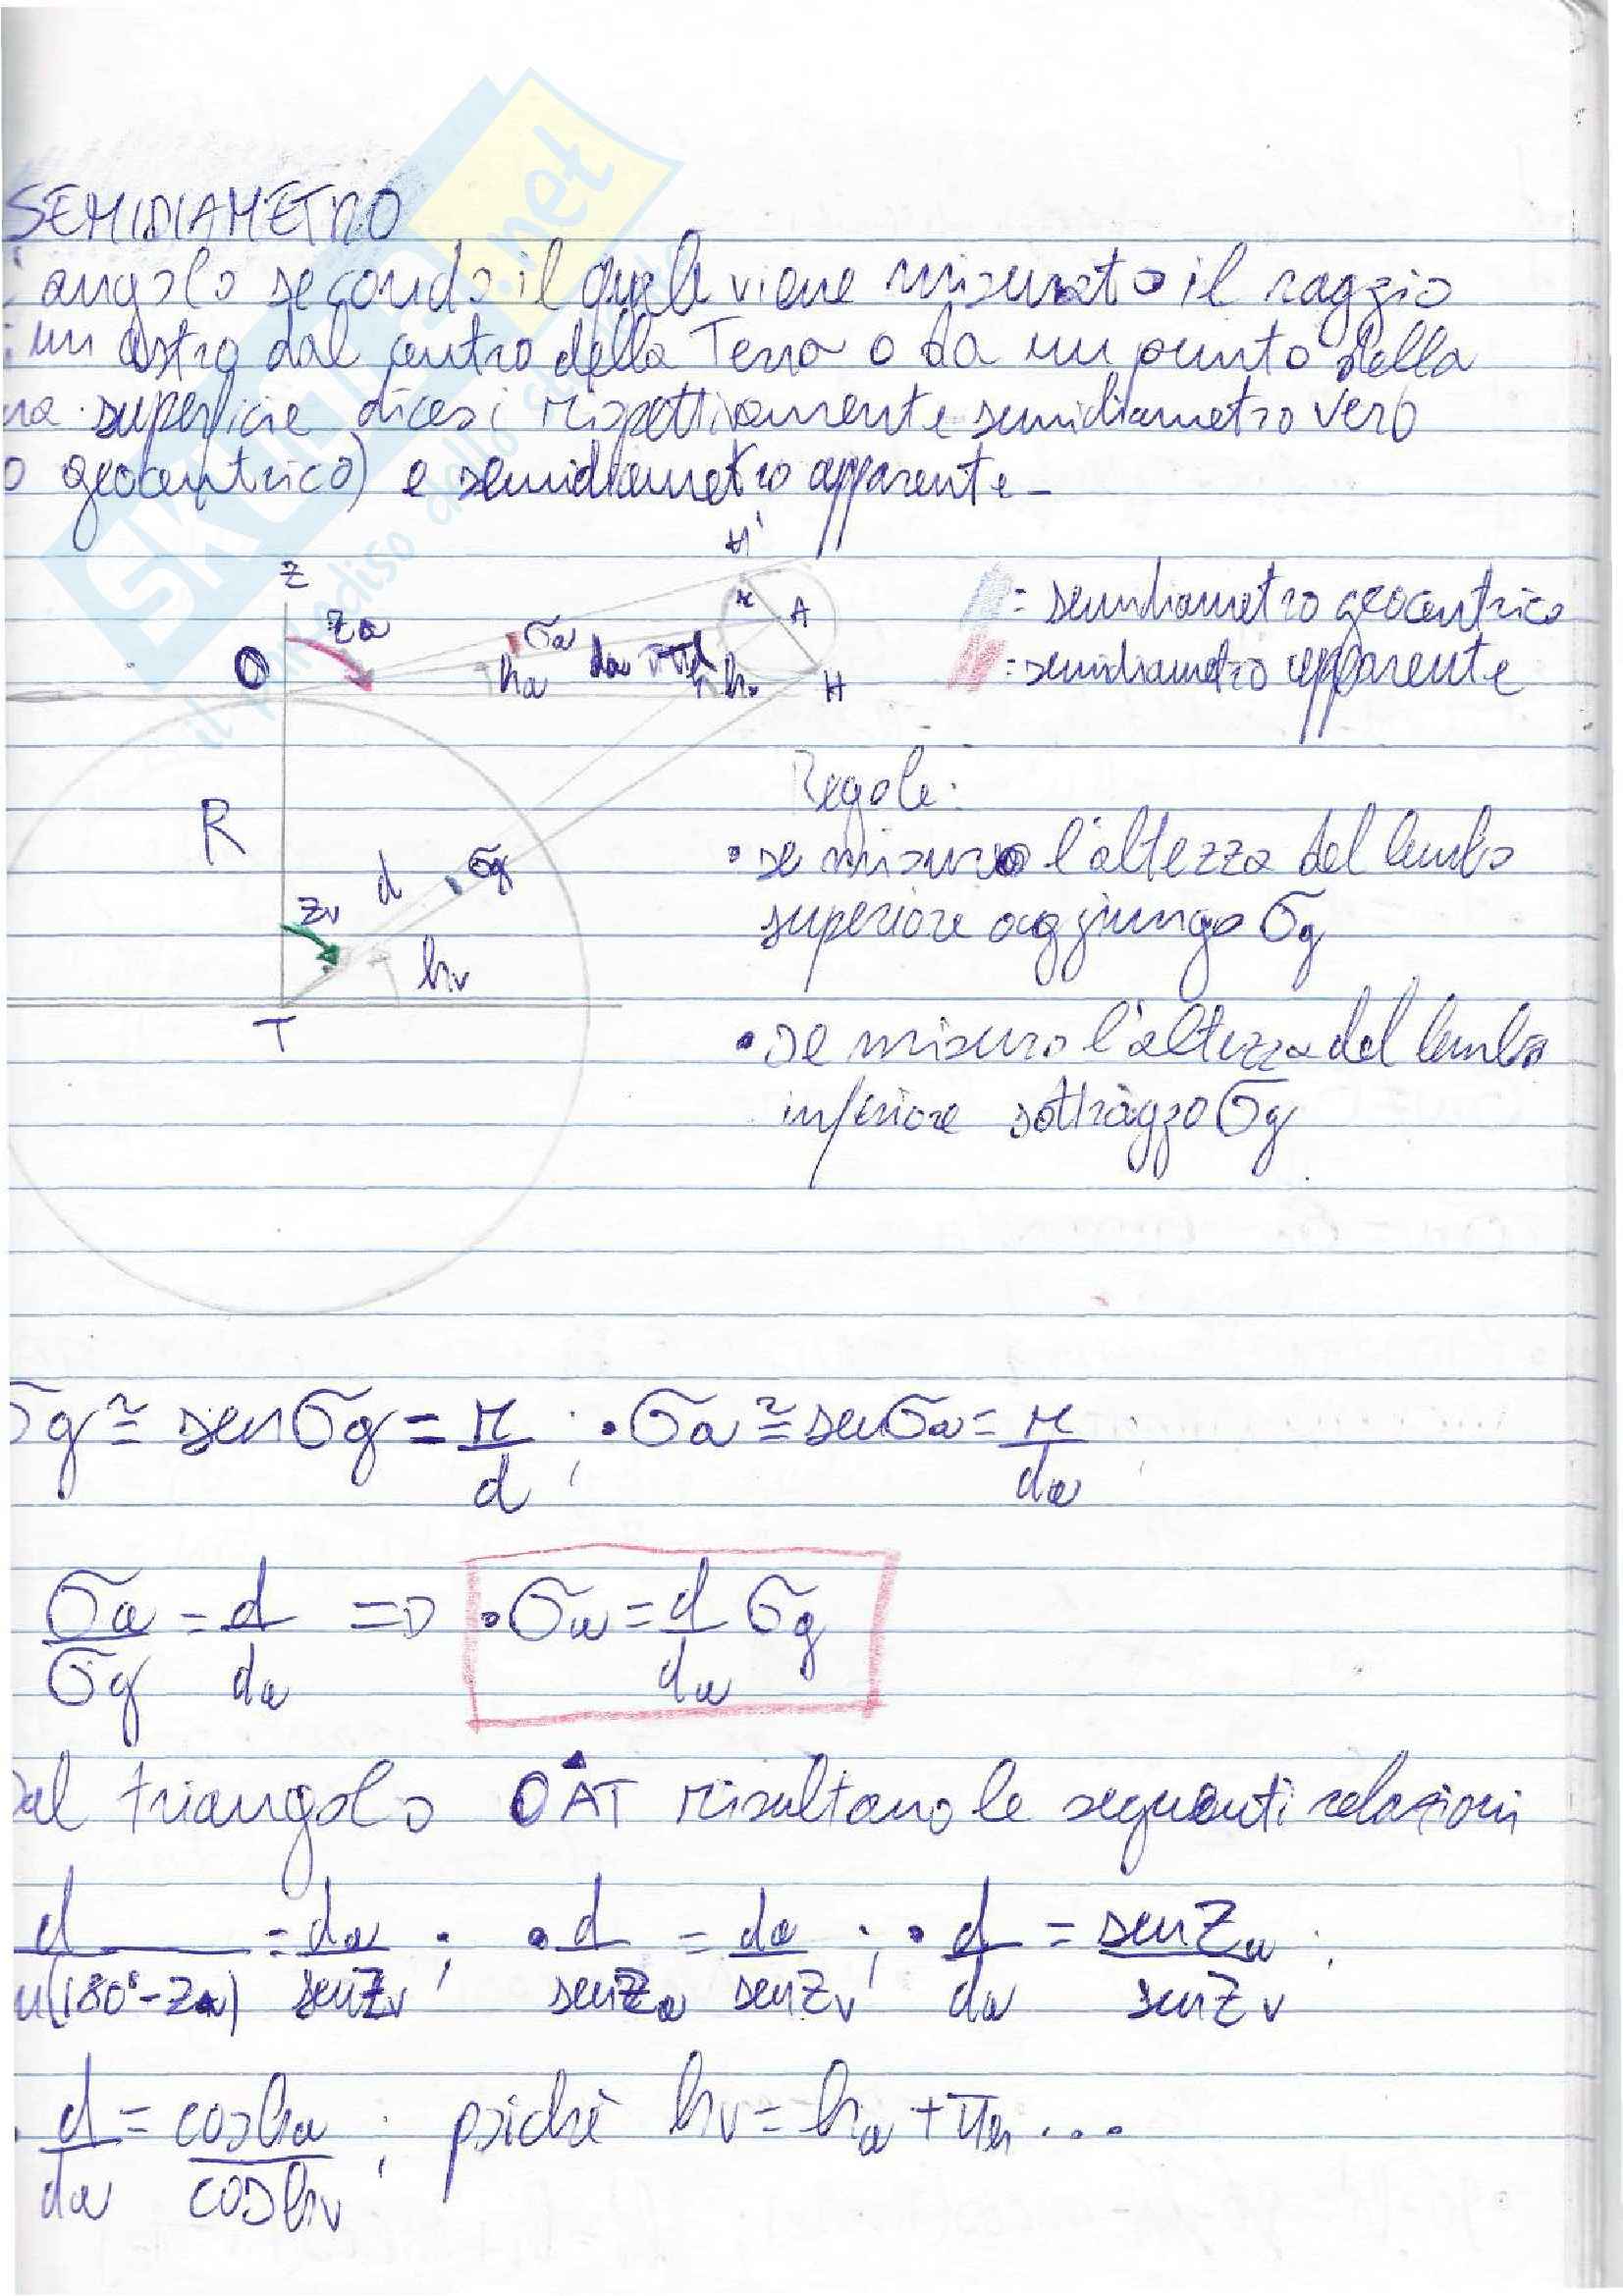 SEMIDIAMETRO
angolo secondo il quale viene misurato il raggio
un astro dal centro della Terra o da un punto della
superficie dicesi rispettivamente semidiametro vero
o geocentrico) e semidiametro apparente-
H'
Z
Za
r
A
= semidiametro geocentrico
O
σa
ha
da
H
= semidiametro apparente
Regole:
R
• se misuro l'altezza del lembo
superiore aggiungo σg
d
σg
Zv
hv
T
• se misuro l'altezza del lembo
inferiore sottraggo σg
σg ≅ sen σg = r/d ; • σa ≅ sen σa = r/da ;
σa/σg = d/da => • σa = d/da σg
Dal triangolo OÂT risultano le seguenti relazioni
d/n(180°-Za) = da/senZv ; • d/senZa = da/senZv ; • d/da = senZa/senZv ;
• d/da = cosha/coshv ; poichè hv = ha + πh ...
SKUOLA.net
il paradiso dello studente